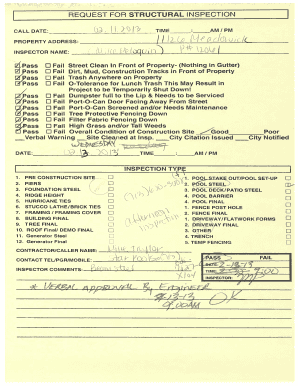 REQUEST FOR STRUCTURAL INSPECTION
CALL DATE: 02.11.2013 TIME AM / PM
PROPERTY ADDRESS:
INSPECTOR NAME:
Pass Fail Street Clean in Front of Property- (Nothing in Gutter)
Pass Fail Dirt, Mud, Construction Tracks in Front of Property
Pass Fail Trash Anywhere on Property
Pass Fail O-Tolerance for Lunch Trash This May Result in
Project to be Temporarily Shut Down!
Pass Fail Dumpster full to the Lip & Needs to be Serviced
Pass Fail Port-O-Can Door Facing Away From Street
Pass Fail Port-O-Can Screened and/or Needs Maintenance
Pass Fail Tree Protective Fencing Down
Pass Fail Filter Fabric Fencing Down
Pass Fail High Grass and/or Tall Weeds
Pass Fail Overall Condition of Construction Site Good Poor
Verbal Warning Site Cleaned at Insp. City Citation Issued City Notified
WEDNESDAY
DATE: TIME AM / PM
INSPECTION TYPE
1. PRE CONSTRUCTION SITE
2. PIERS
3. FOUNDATION STEEL
4. RIDGE HEIGHT
5. HURRICANE TIES
6. STUCCO LATHE/BRICK TIES
7. FRAMING / FRAMING COVER
8. BUILDING FINAL
9. TREE FINAL
10. ROOF Final/ DEMO FINAL
11. Generator Steel
12. Generator Final
1. POOL STAKE OUT/POOL SET-UP
2. POOL STEEL
3. POOL DECK/PATIO STEEL
4. POOL BARRIER
5. POOL FINAL
1. FENCE POST HOLE
2. FENCE FINAL
1. DRIVEWAY/FLATWORK FORMS
2. DRIVEWAY FINAL
3. OTHER
4. TRENCH
5. TEMP FENCING
CONTRACTOR/CALLER NAME:
CONTACT TEL/PGR/MOBILE:
INSPECTOR COMMENTS
PASS FAIL
DATE 2-13-13
TIME 9:00
INSPECTOR:
* VERBAL APPROVAL By ENGINEER
2-13-13
9:00AM OK